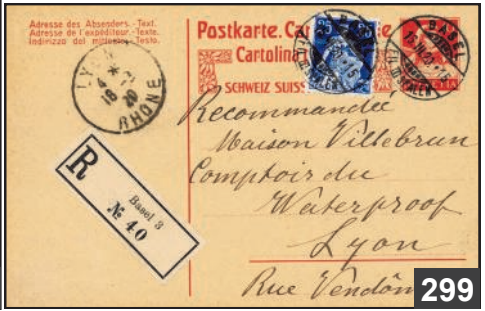 Adresse des Absenders.-Text.
Adresse de l'expéditeur.-Texte.
Indirizzo del mittente.-Testo.
Postkarte. Ca
Cartolina
SCHWEIZ SUISS
25
BASEL
BASEL
LYON
RHONE
R
Basel 3
№ 40
Recommandée
Maison Villebrun
Comptoir du
Waterproof
Lyon
Rue Vendôm
299